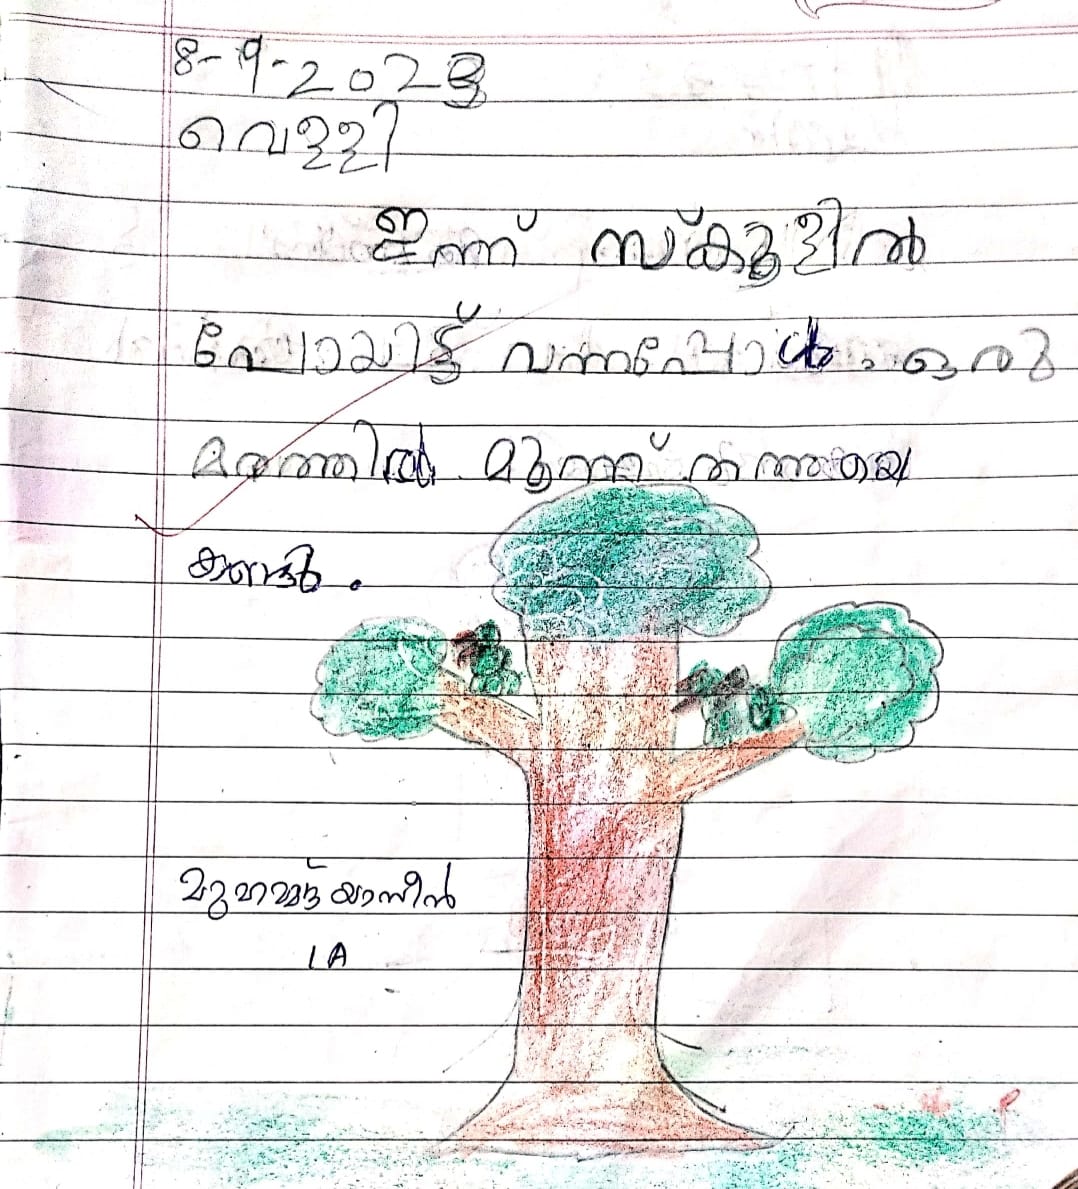 8-9-2023
വെള്ളി
ഇന്ന് സ്കൂളിൽ
പോയിട്ട് വന്നപ്പോൾ . ഒരു
മരത്തിൽ മൂന്ന് തത്തയെ
കണ്ടു .
മുഹമ്മദ് യാസീൻ
1A